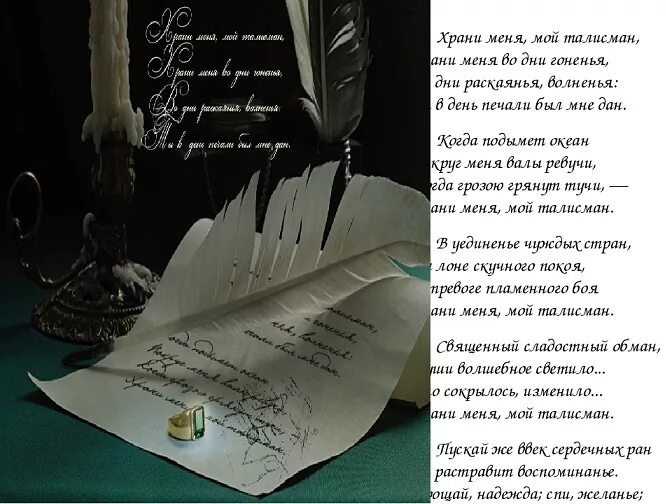 Храни меня, мой талисман,
Храни меня во дни гоненья,
Во дни раскаянья, волненья:
Ты в день печали был мне дан.
гоненья,
волненья:
был мне дан.
подымет океан
Вокруг меня валы
Храни мен мой талисман.
Храни меня, мой талисман,
ани меня во дни гоненья,
дни раскаянья, волненья:
в день печали был мне дан.
Когда подымет океан
круг меня валы ревучи,
гда грозою грянут тучи, —
ани меня, мой талисман.
В уединенье чуждых стран,
лоне скучного покоя,
превоге пламенного боя
ани меня, мой талисман.
Священный сладостный обман,
уши волшебное светило...
о сокрылось, изменило...
ани меня, мой талисман.
Пускай же ввек сердечных ран
растравит воспоминанье.
ощай, надежда; спи, желанье;